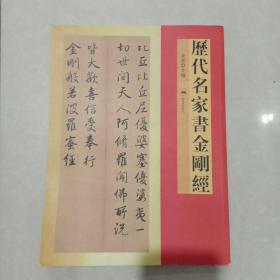 歷代名家書金剛經
主編
比丘比丘尼優婆塞優婆夷一
切世間天人阿脩羅聞佛所說
皆大歡喜信受奉行
金剛般若波羅蜜經